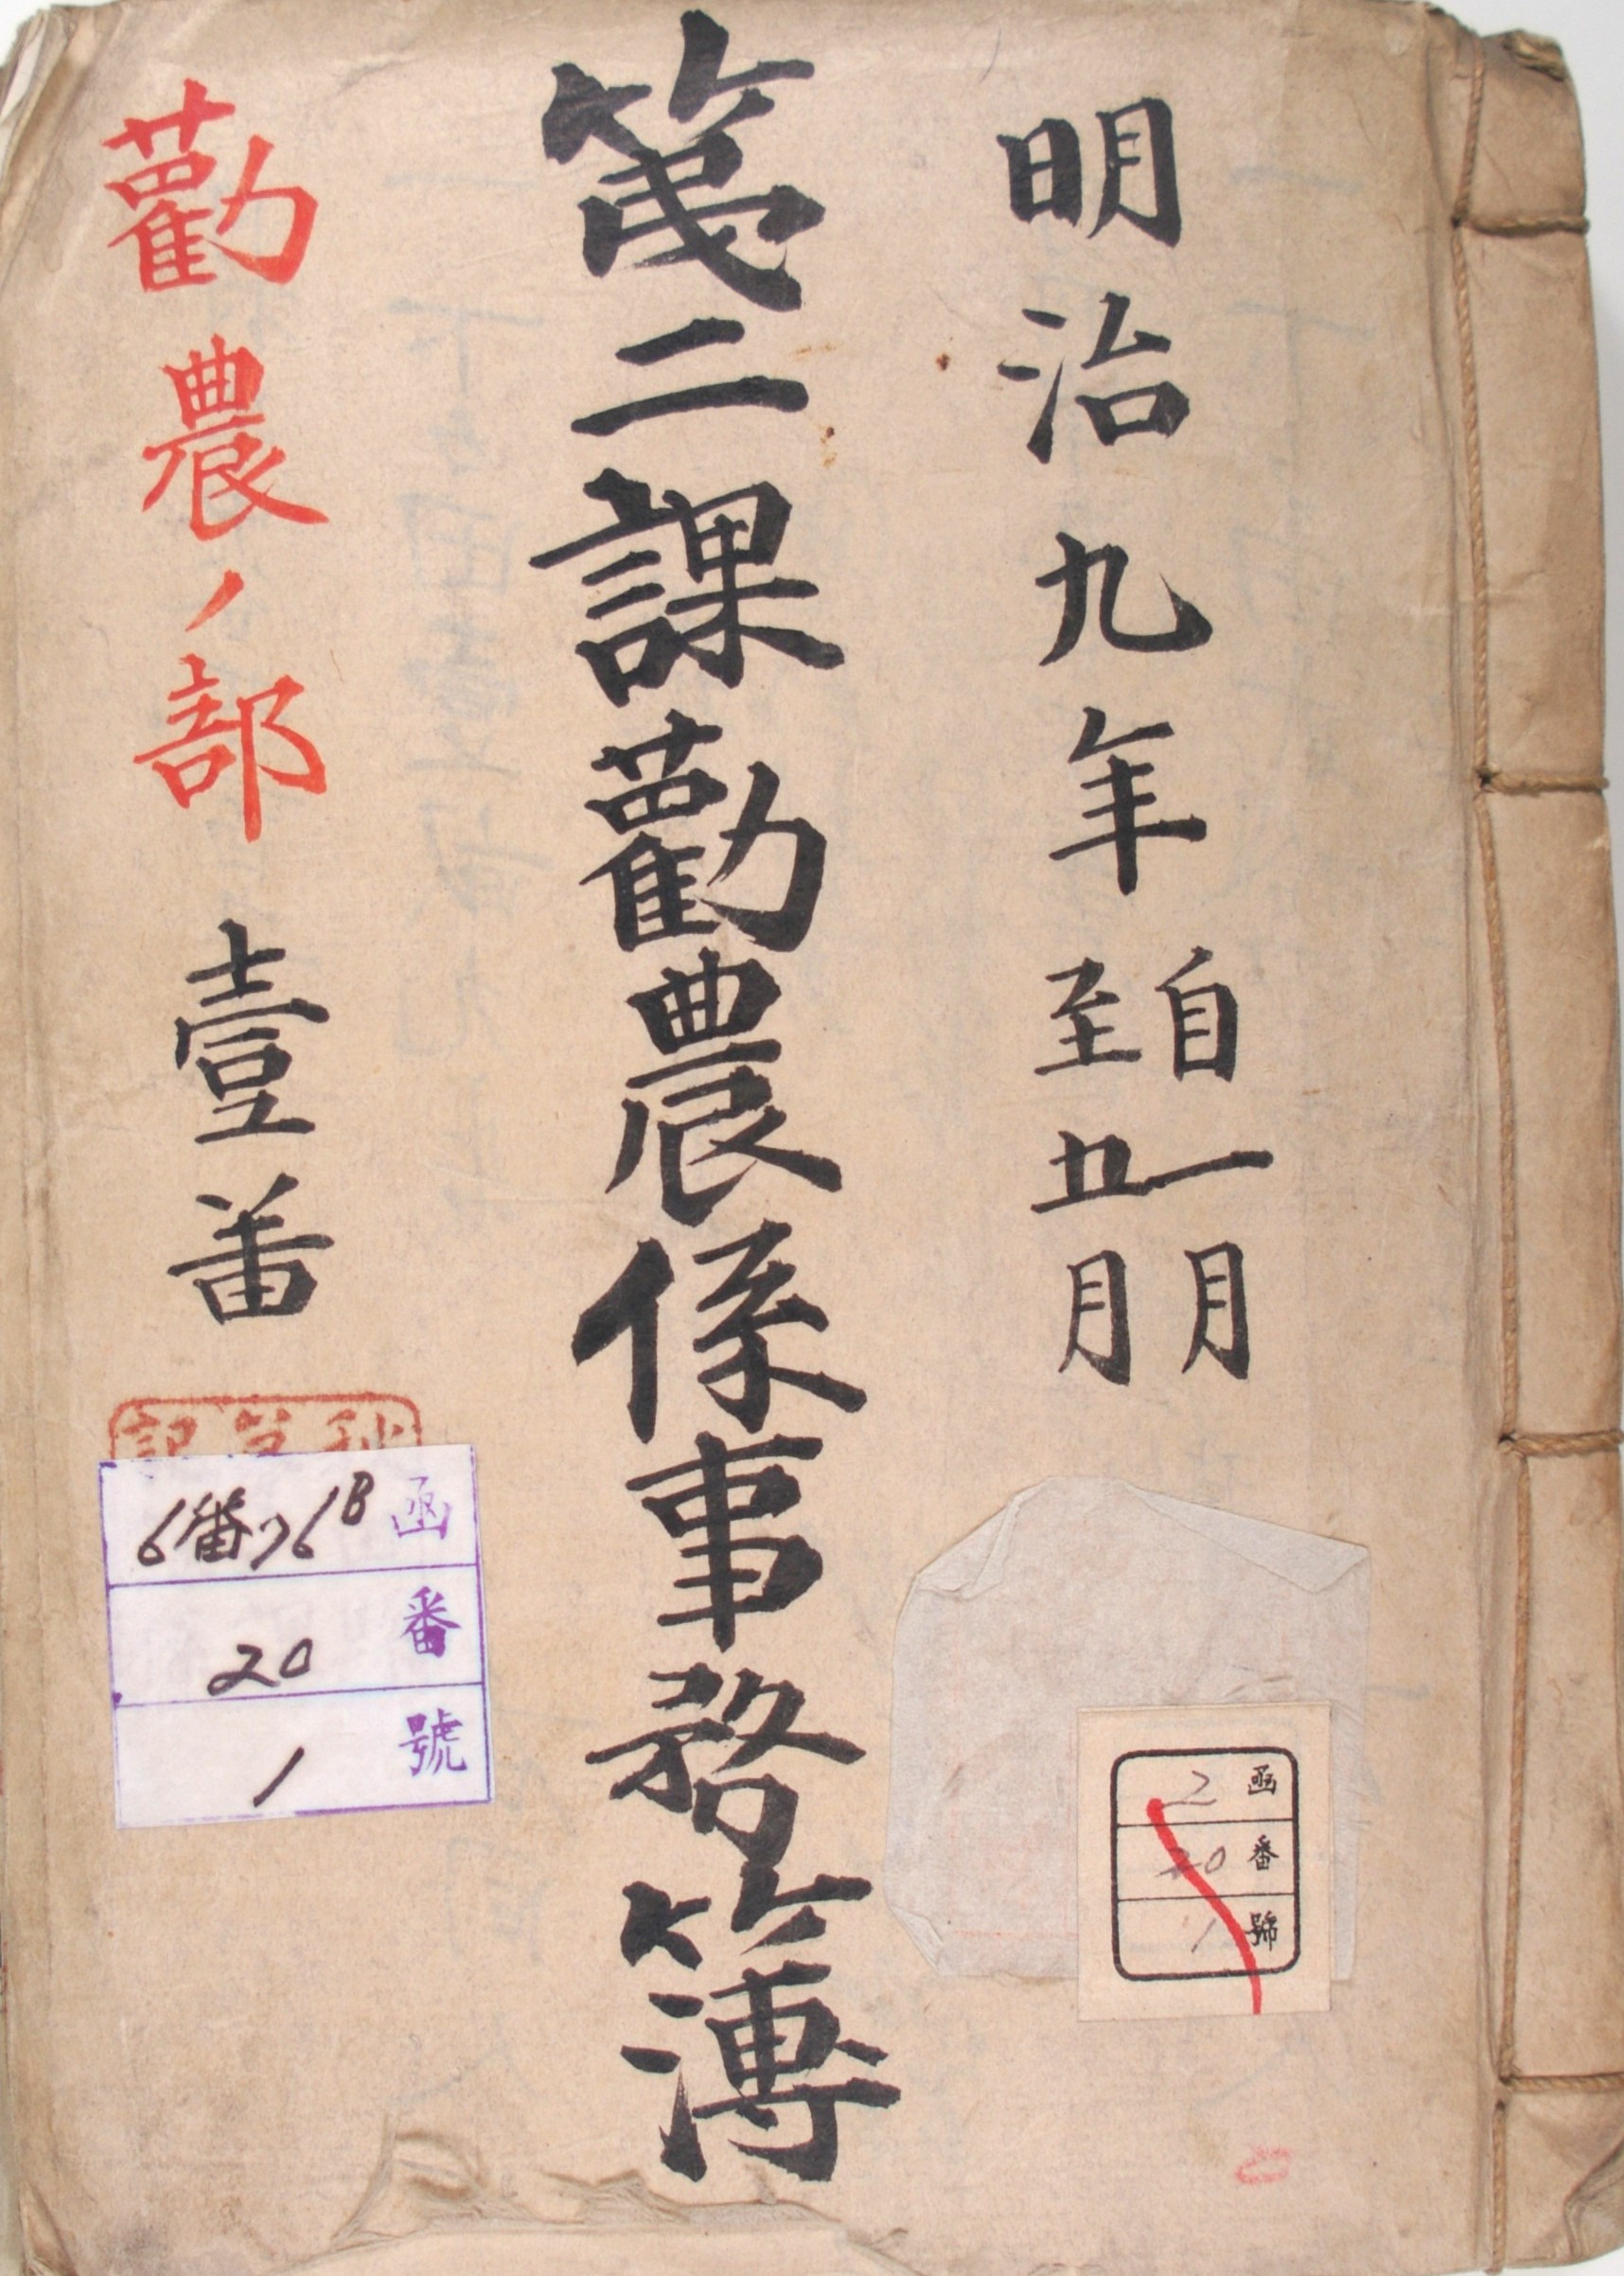 明治九年 自一月
至五月
第二課勸農係事務簿
勸農ノ部 壹番
函 6番ノ6B
番 20
號 1
函 2
番 20
號 1